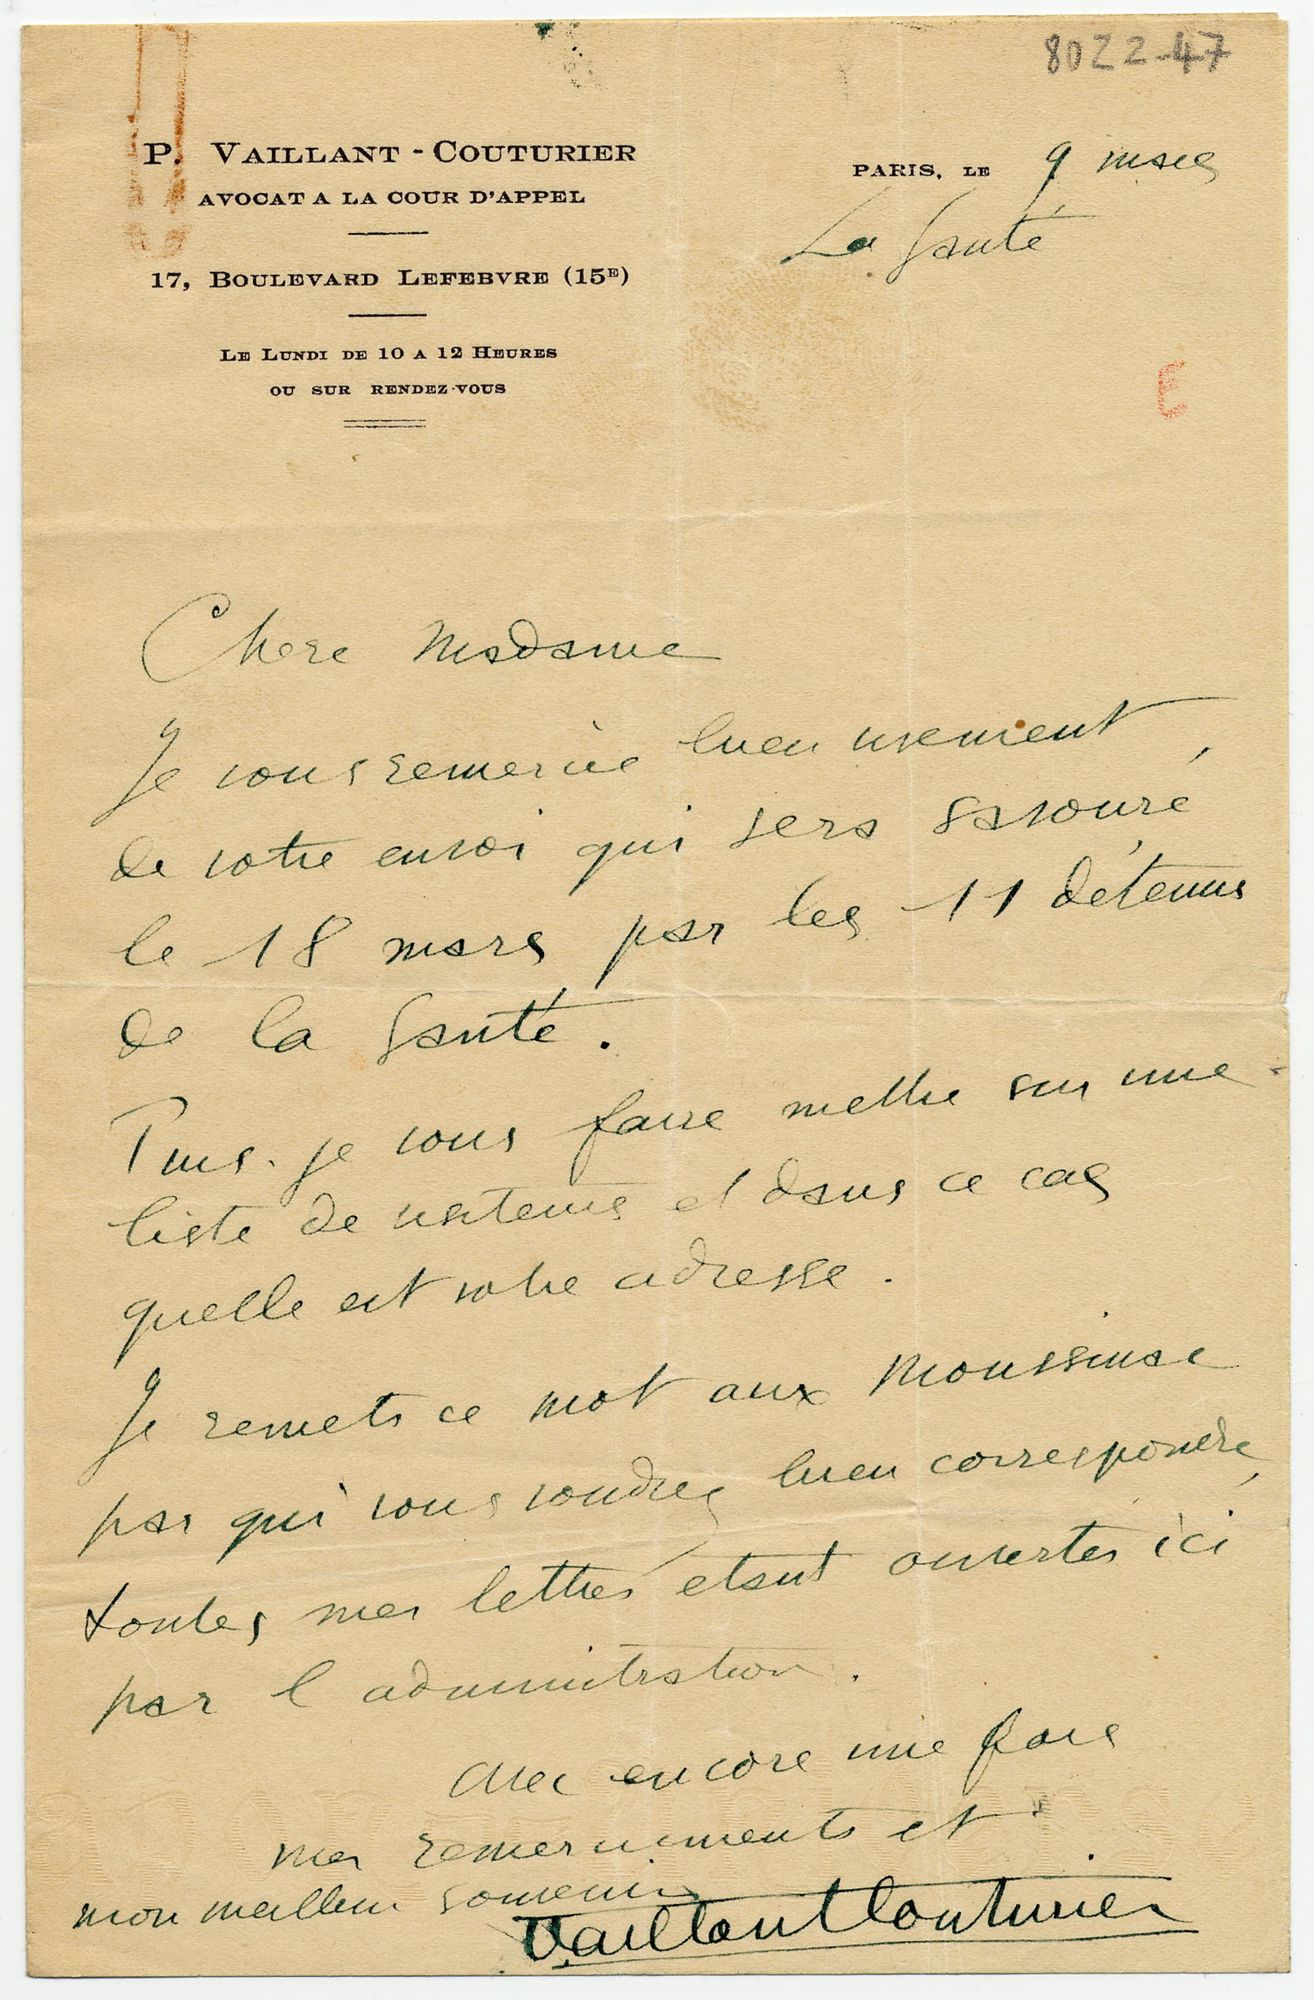 8022-47
P. VAILLANT-COUTURIER
AVOCAT A LA COUR D'APPEL
17, BOULEVARD LEFEBVRE (15E)
LE LUNDI DE 10 A 12 HEURES
OU SUR RENDEZ-VOUS
PARIS, LE 9 mars
La Santé
E
Chere Madame
Je vous remercie bien vivement
de votre envoi qui sera savouré,
le 18 mars, par les 11 détenus
de la Santé.
Puis-je vous faire mettre sur une
liste de visiteurs et dans ce cas
quelle est votre adresse.
Je remets ce mot aux Moussinac
par qui vous voudrez bien correspondre,
toutes mes lettres étant ouvertes ici
par l'administration.
Avec encore une fois
mes remerciements et
mon meilleur souvenir
Vaillant Couturier